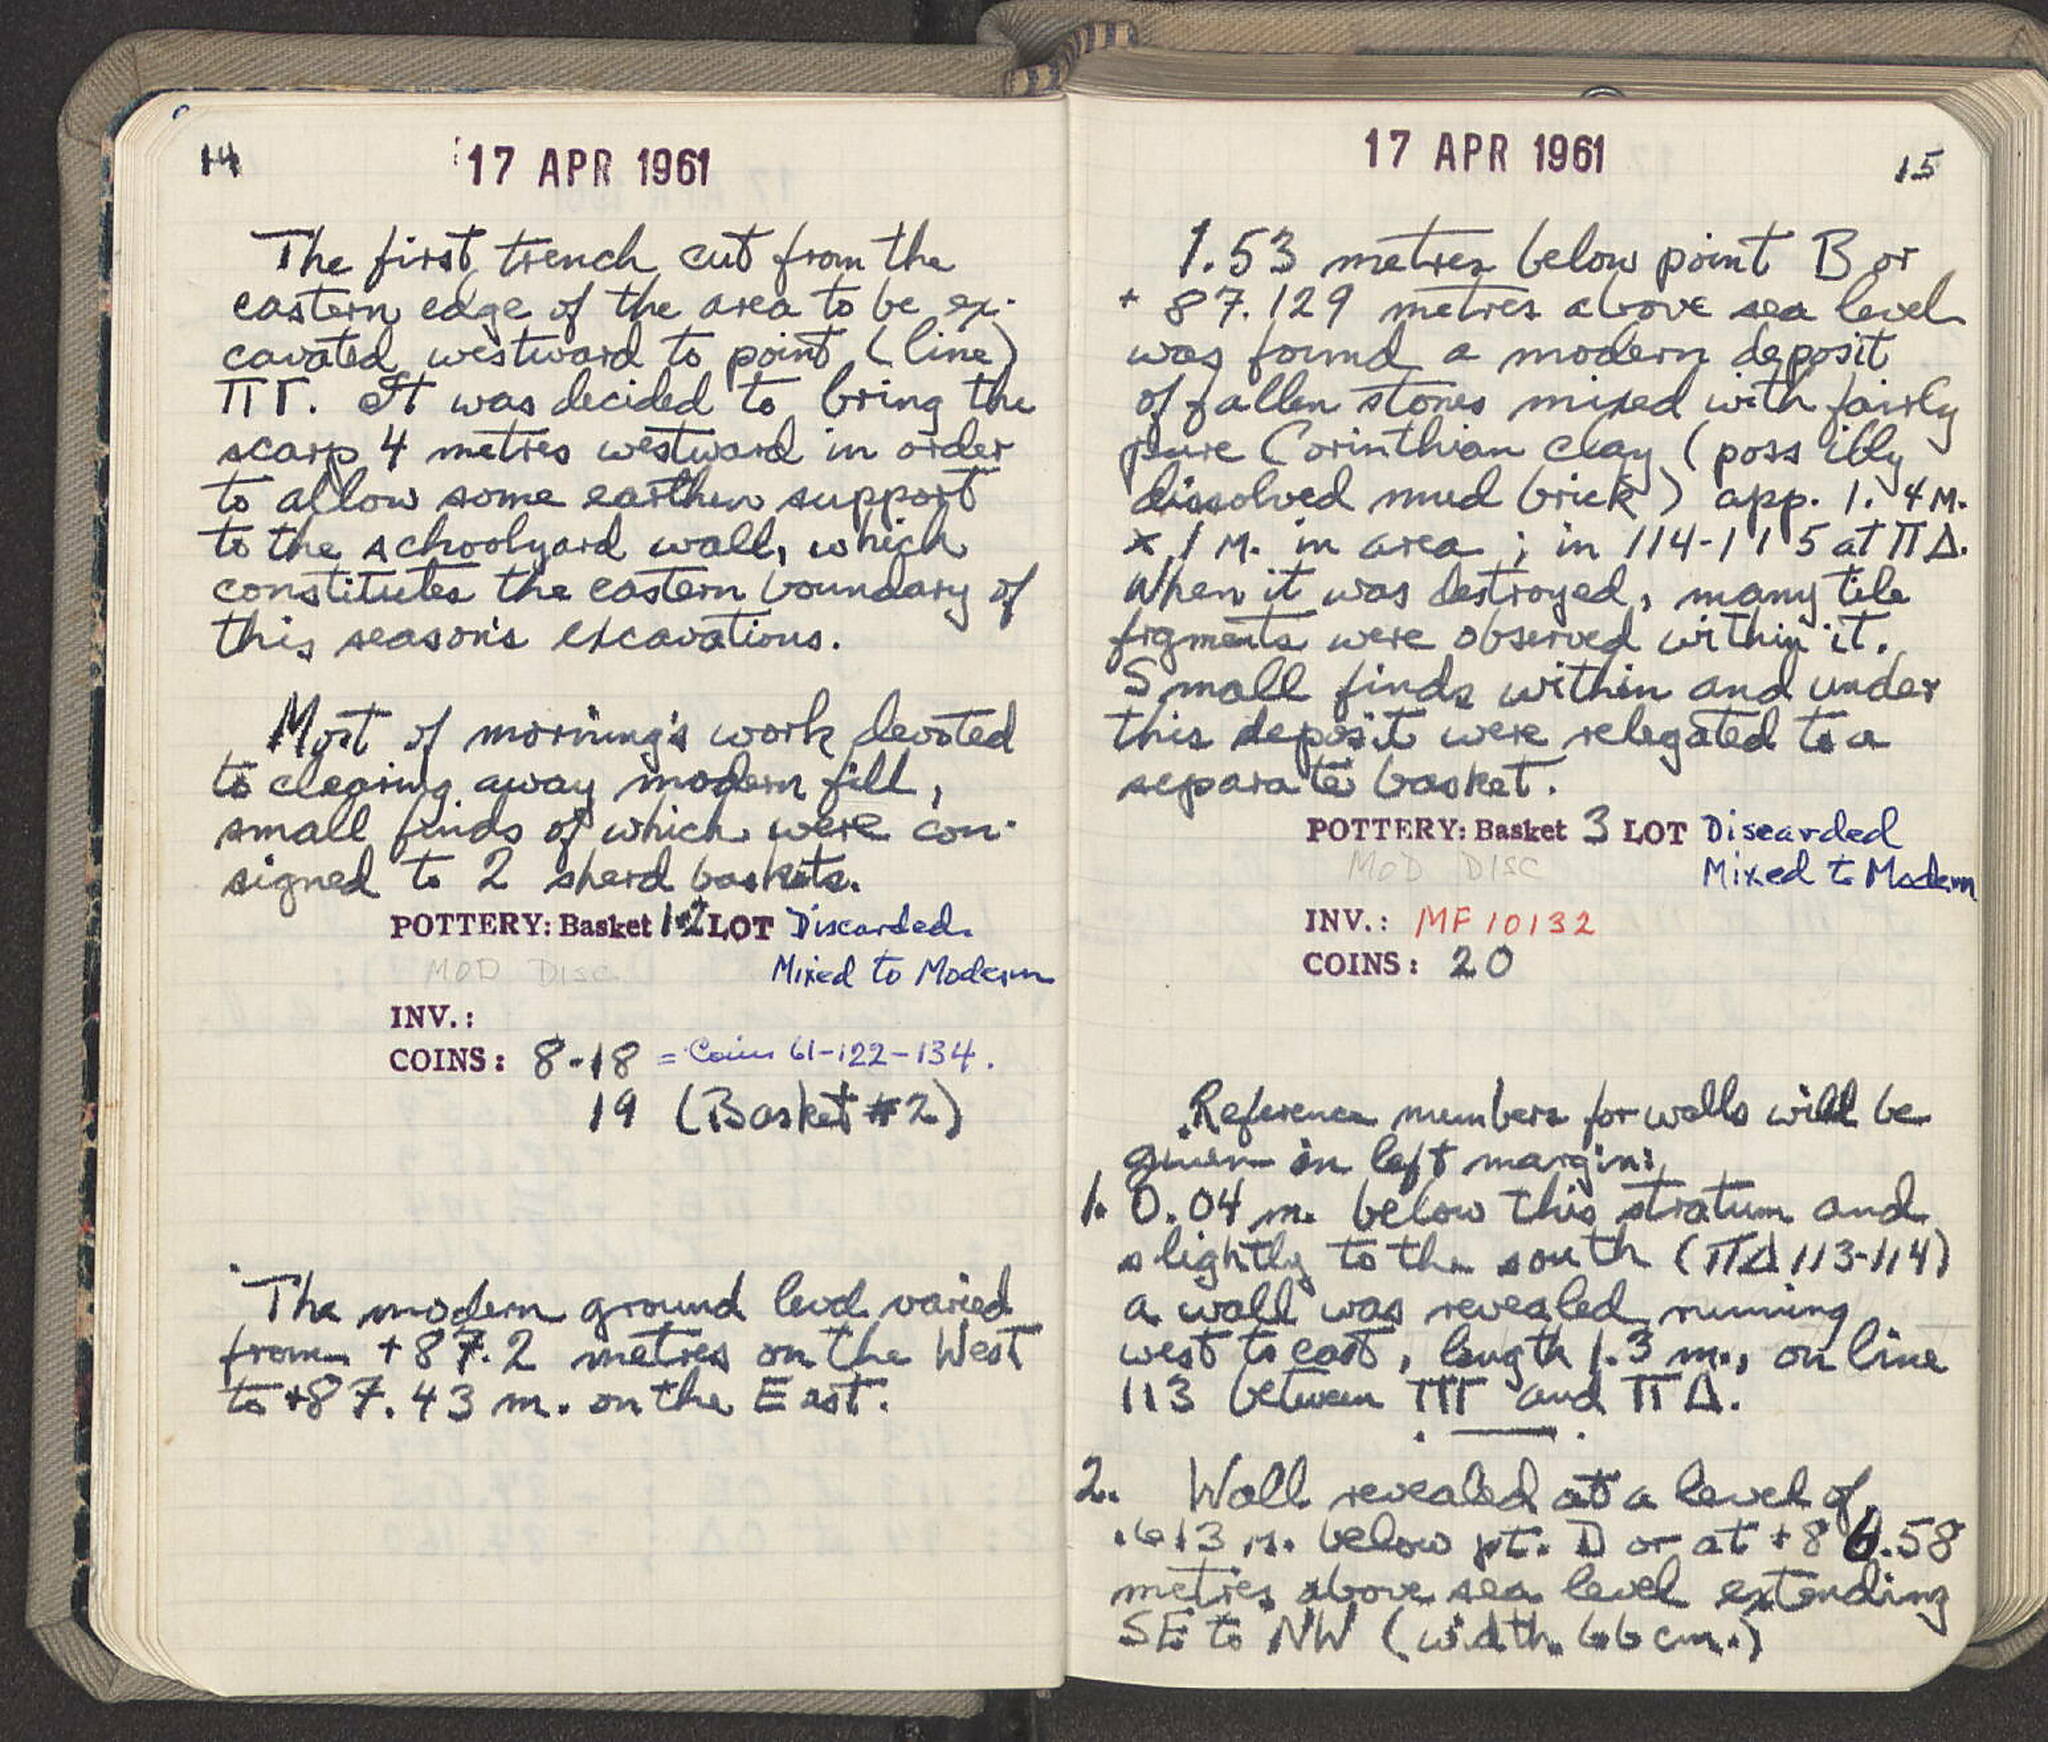 14
17 APR 1961
The first trench cut from the
eastern edge of the area to be ex-
cavated westward to point (line)
ΠΓ. It was decided to bring the
scarp 4 metres westward in order
to allow some earthen support
to the schoolyard wall, which
constitutes the eastern boundary of
this season's excavations.
Most of morning's work devoted
to clearing away modern fill,
small finds of which were con-
signed to 2 sherd baskets.
POTTERY: Basket 1-2 LOT Discarded.
MOD DISC Mixed to Modern
INV.:
COINS: 8-18 = Coins 61-122-134.
19 (Basket #2)
The modern ground level varied
from +87.2 metres on the West
to +87.43 m. on the East.
17 APR 1961
15
1.53 metres below point B or
+ 87.129 metres above sea level
was found a modern deposit
of fallen stones mixed with fairly
pure Corinthian clay (possibly
dissolved mud brick) app. 1.4 M.
x 1 M. in area; in 114-115 at ΠΔ.
When it was destroyed, many tile
frgments were observed within it.
Small finds within and under
this deposit were relegated to a
separate basket.
POTTERY: Basket 3 LOT Discarded
MOD DISC Mixed to Modern
INV.: MF 10132
COINS: 20
Reference numbers for walls will be
given in left margin:
1. 0.04 m. below this stratum and
slightly to the south (ΠΔ 113-114)
a wall was revealed running
west to east, length 1.3 m., on line
113 between ΠΓ and ΠΔ.
2. Wall revealed at a level of
.613 m. below pt. D or at +86.58
metres above sea level extending
SE to NW (width 66 cm.)